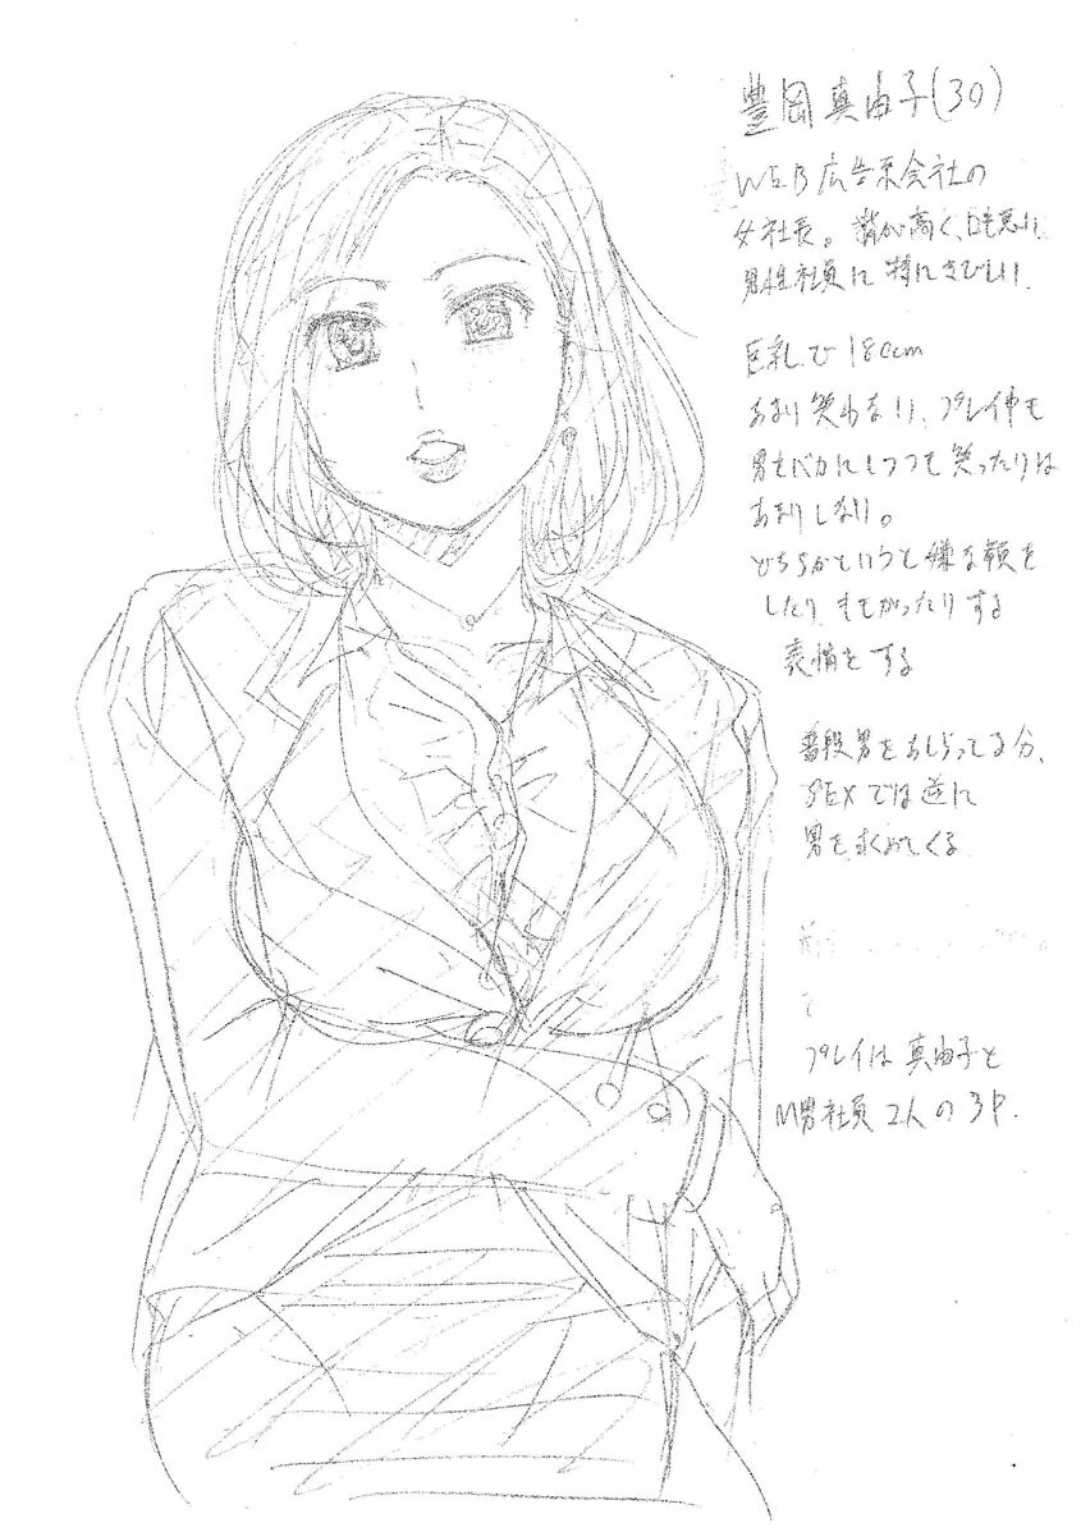 豊岡真由子(30)
WEB広告系会社の
女社長。背が高く、口も悪い。
男性社員に特にきびしい。
巨乳で180cm
あまり笑わない、プレイ中も
男をバカにしつつも笑ったりは
あまりしない。
どちらかというと嫌な顔を
したり するがったりする
表情をする
普段男をあしらってる分、
SEXでは逆に
男を求めてくる
プレイは真由子と
M男社員2人の3P.